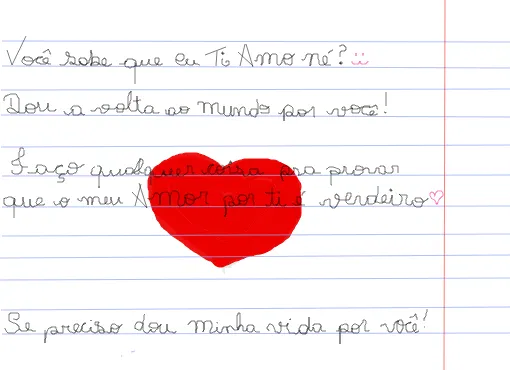 Você sabe que eu Ti Amo né?
Dou a volta ao mundo por você!
Faço qualquer coisa pra provar
que o meu Amor por ti é verdeiro
Se preciso dou minha vida por você!